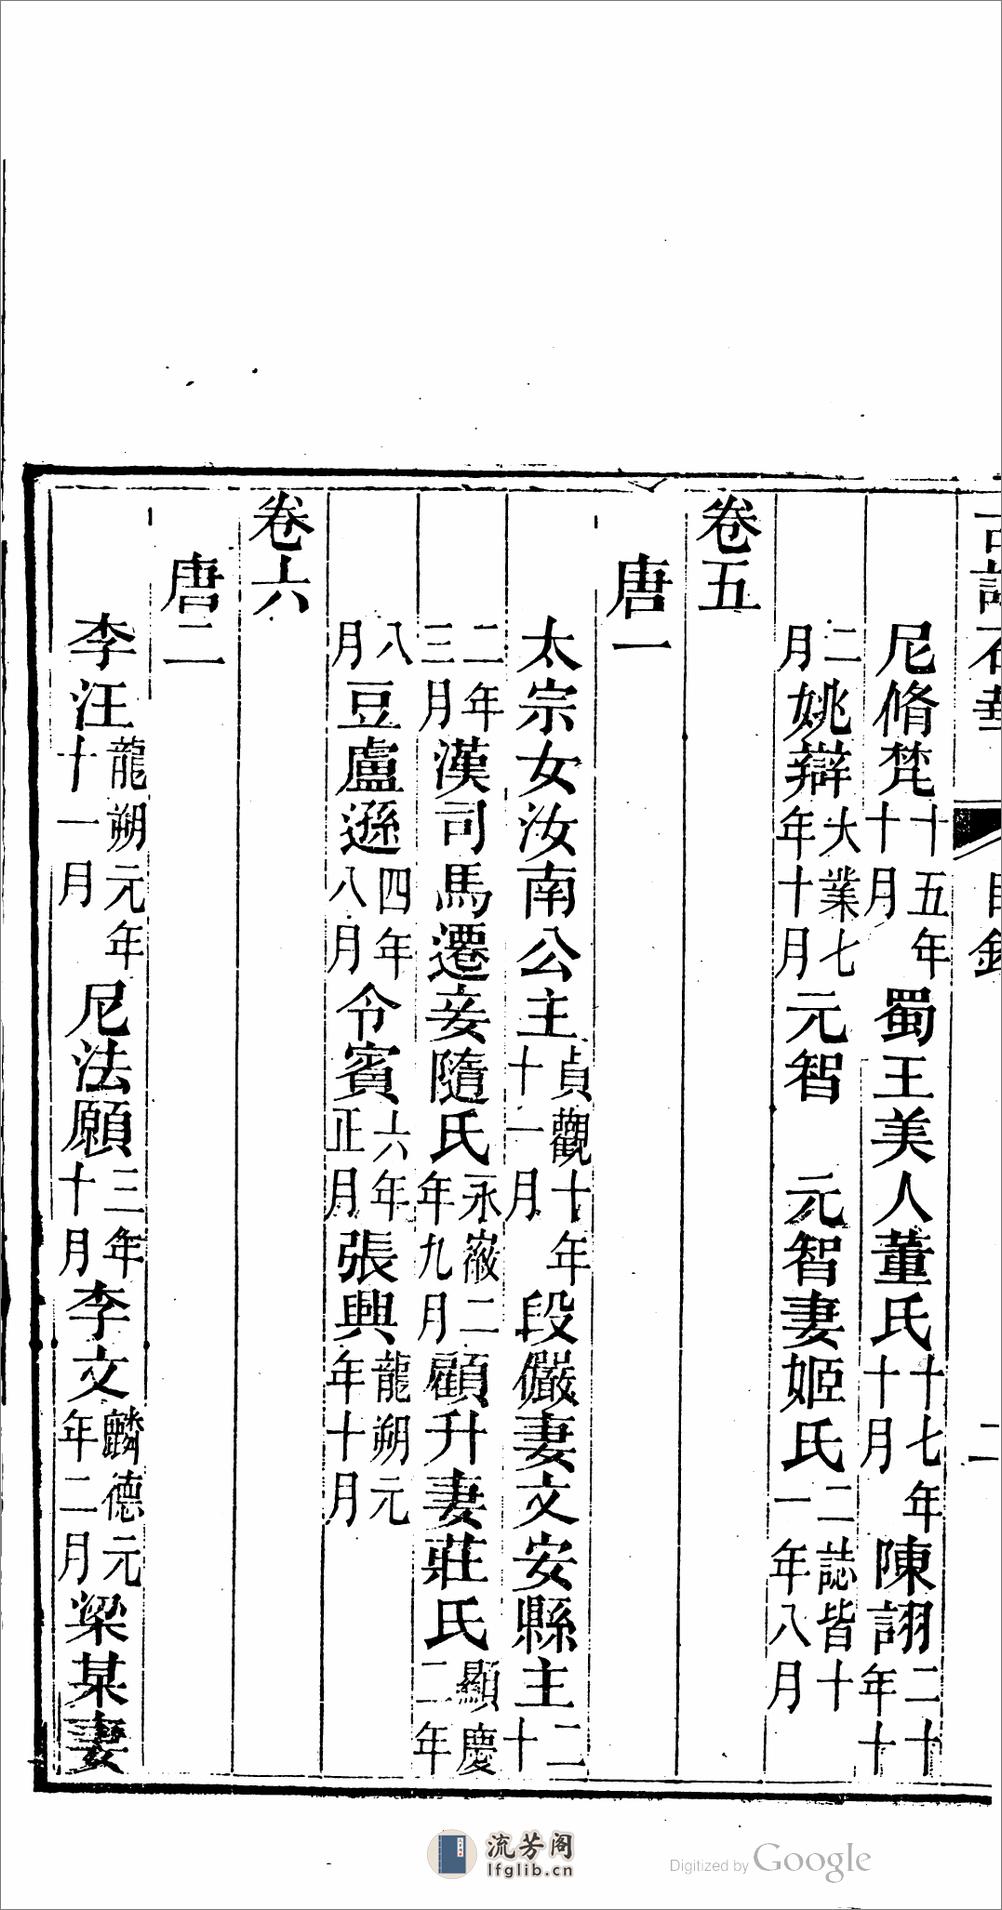 目錄
二
尼脩梵十五年十月蜀王美人董氏十七年十月陳詡二十年十
二月姚辯大業七年十月元智　元智妻姬氏二誌皆十一年八月
卷五
唐一
太宗女汝南公主貞觀十年十一月段儼妻文安縣主二十
二年三月漢司馬遷妾隨氏永徽二年九月顧升妻莊氏顯慶二年
八月豆盧遜四年八月令賓六年正月張興龍朔元年十月
卷六
唐二
李汪龍朔元年十一月尼法願三年十月李文麟德元年二月梁某妻
流芳阁
lfglib.cn
Digitized by Google